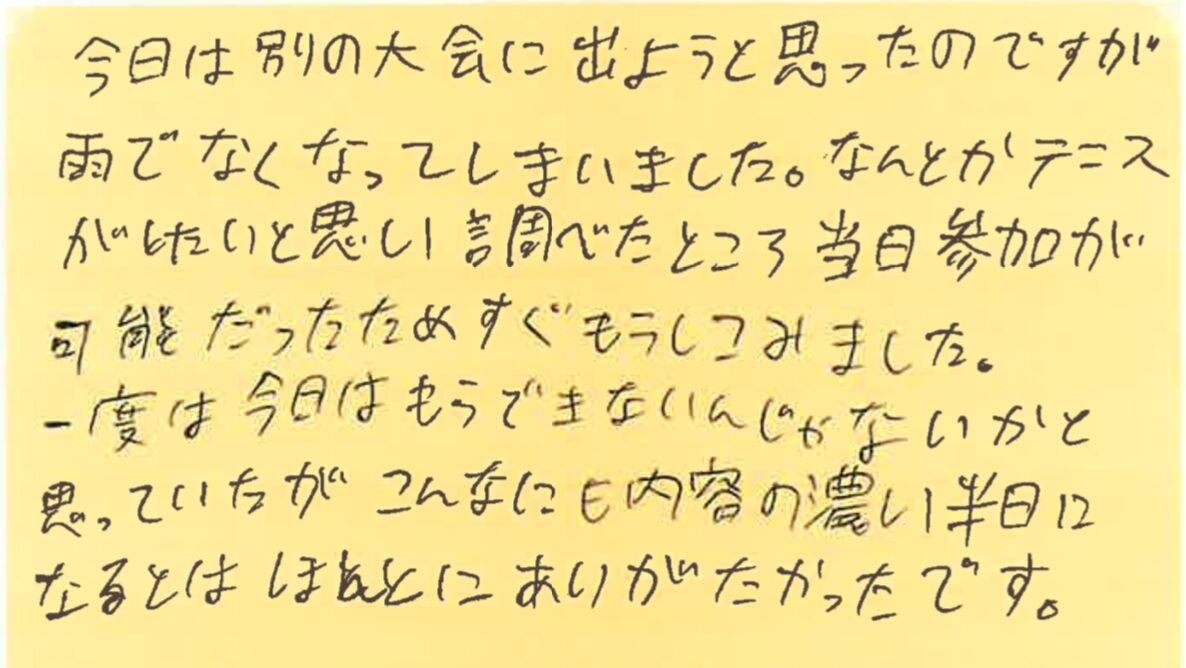 今日は別の大会に出ようと思ったのですが
雨でなくなってしまいました。なんとかテニス
がしたいと思い調べたところ当日参加が
可能だったためすぐもうしこみました。
一度は今日はもうできないんじゃないかと
思っていたがこんなにも内容の濃い半日に
なるとはほんとにありがたかったです。